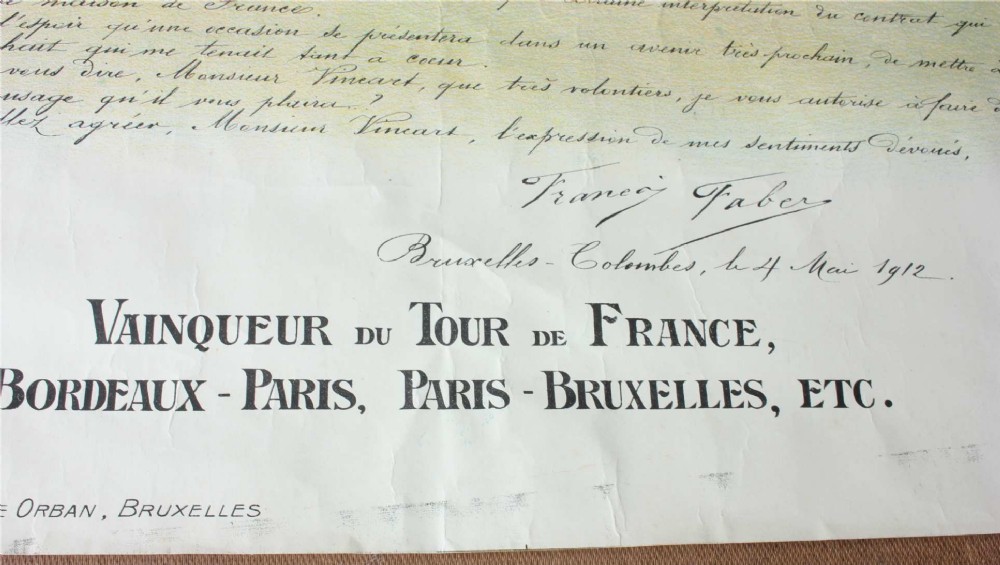 maison de France. interprétation du contrat qui
l'espoir qu'une occasion se présentera dans un avenir très prochain, de mettre à
qui me tenait tant à coeur.
vous dire, Monsieur Vincart, que très volontiers, je vous autorise à faire
usage qu'il vous plaira ?
agréer, Monsieur Vincart, l'expression de mes sentiments dévoués,
François Faber
Bruxelles - Colombes, le 4 Mai 1912.
VAINQUEUR DU TOUR DE FRANCE,
BORDEAUX - PARIS, PARIS - BRUXELLES, ETC.
ORBAN, BRUXELLES